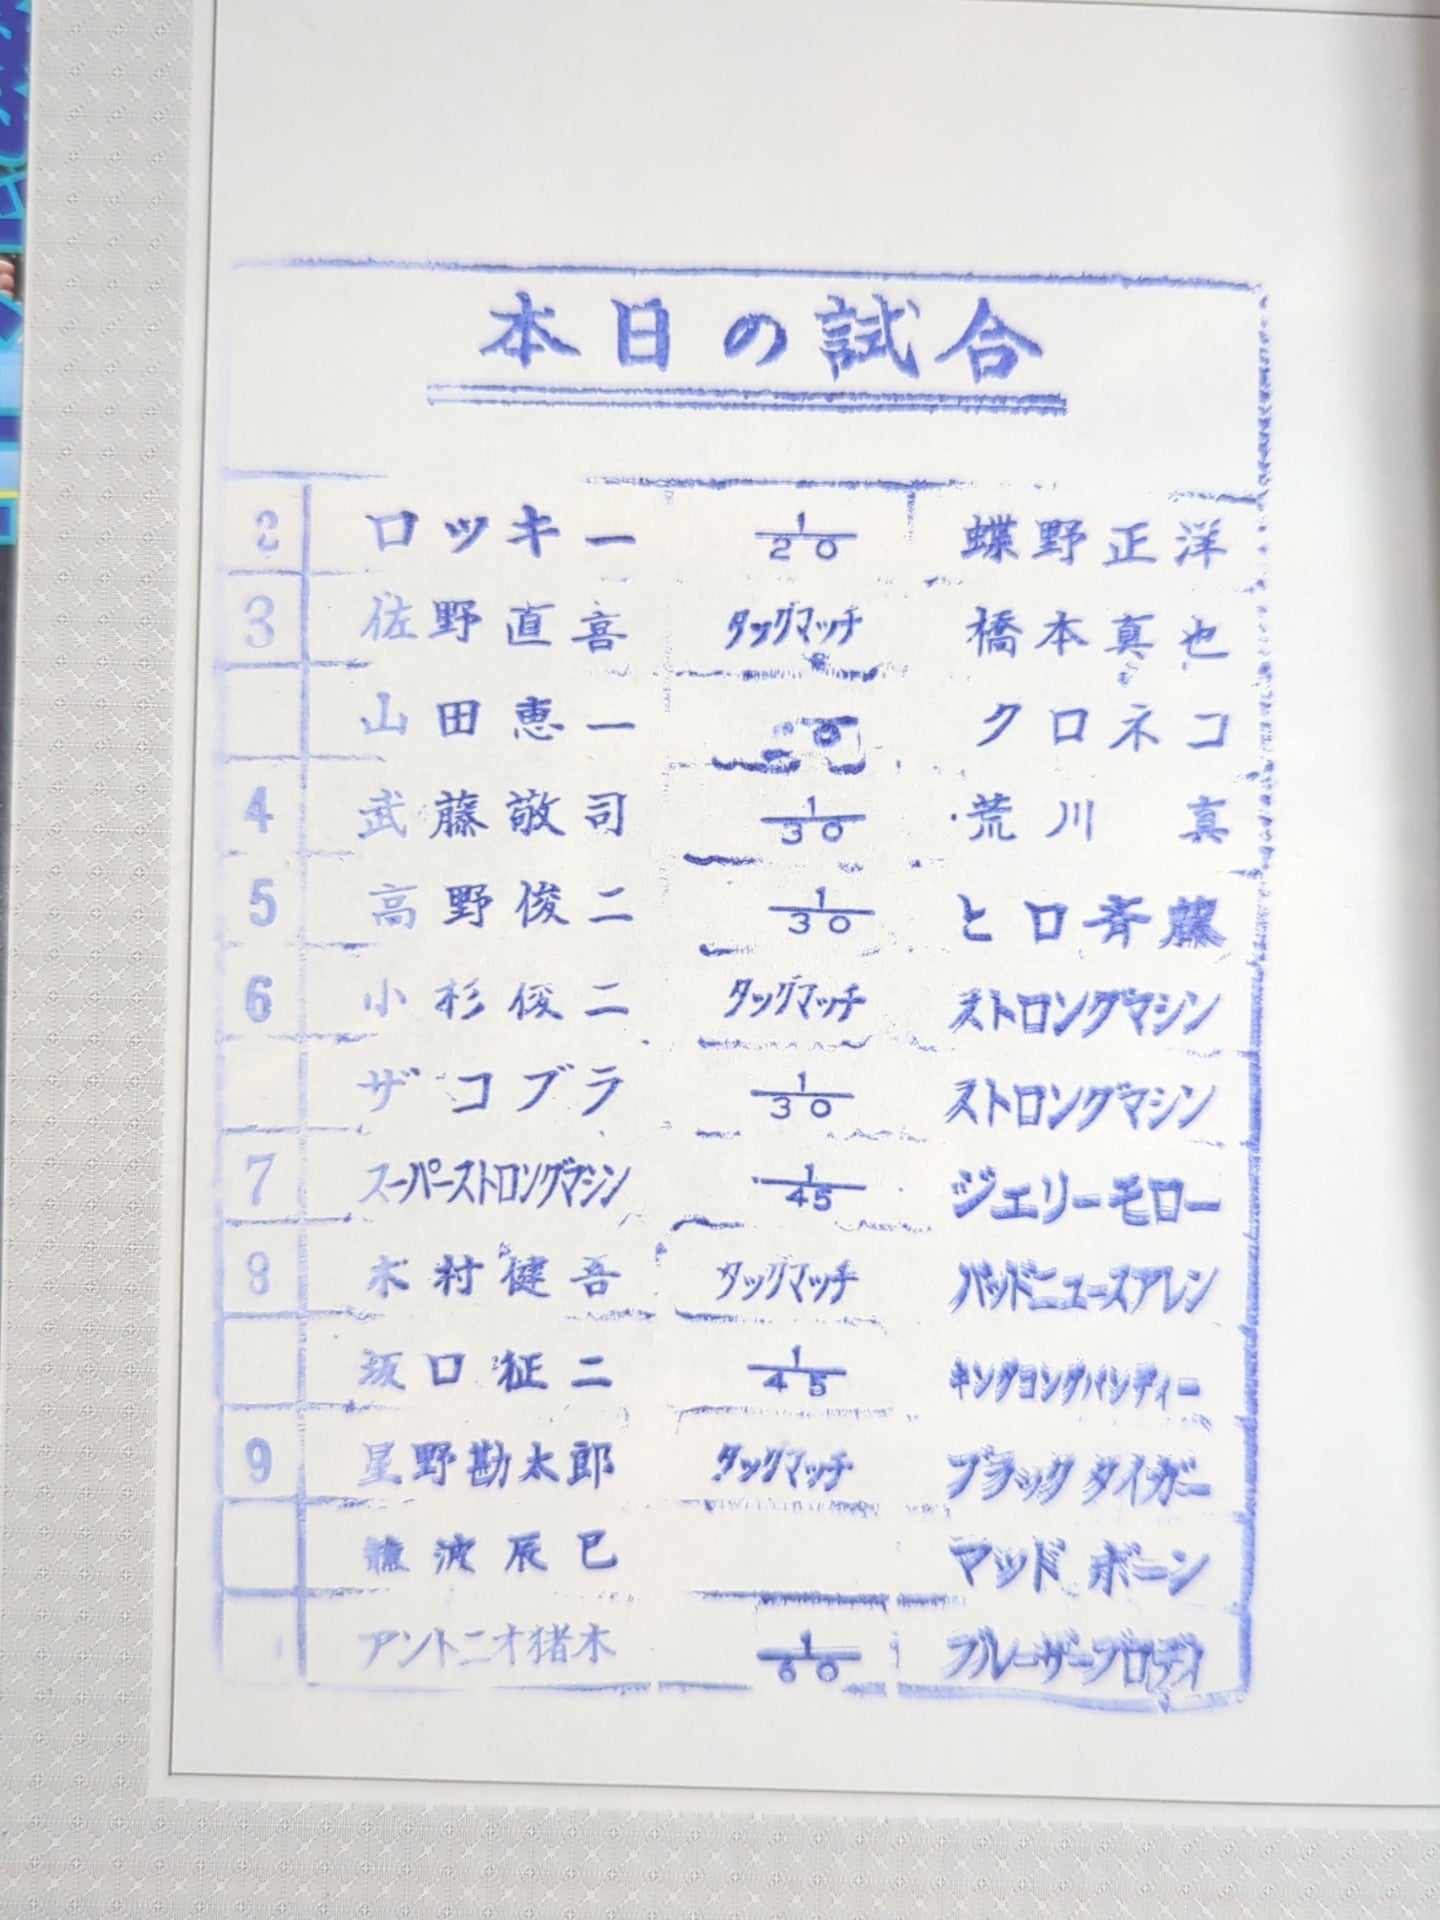 本日の試合
2 ロッキー 1/20 蝶野正洋
3 佐野直喜 タッグマッチ 橋本真也
山田恵一 クロネコ
4 武藤敬司 1/30 荒川 真
5 高野俊二 1/30 ヒロ斉藤
6 小杉俊二 タッグマッチ ストロングマシン
ザ コブラ 1/30 ストロングマシン
7 スーパーストロングマシン 1/45 ジェリーモロー
8 木村健吾 タッグマッチ バッドニュースアレン
坂口征二 1/45 キングコングバンディー
9 星野勘太郎 タッグマッチ ブラックタイガー
波辰巳 マッド ボーン
アントニオ猪木 1/60 ブルーザーブロディ